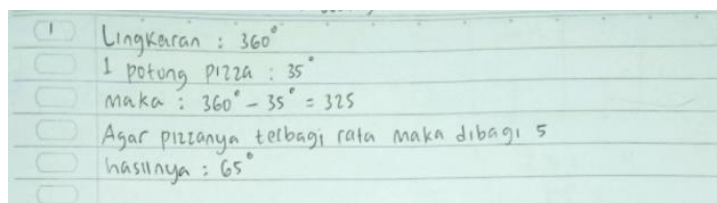 1 Lingkaran : 360°
1 potong pizza : 35°
maka : 360° - 35° = 325
Agar pizzanya terbagi rata maka dibagi 5
hasilnya : 65°